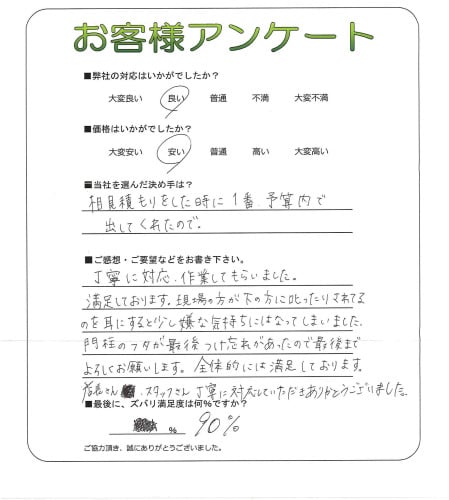 お客様アンケート
■弊社の対応はいかがでしたか？
大変良い 良い 普通 不満 大変不満
■価格はいかがでしたか？
大変安い 安い 普通 高い 大変高い
■当社を選んだ決め手は？
相見積もりをした時に1番、予算内で
出してくれたので。
■ご感想・ご要望などをお書き下さい。
丁寧に対応、作業してもらいました。
満足しております。現場の方が下の方に叱ったりされてる
のを耳にすると少し嫌な気持ちにはなってしまいました。
門柱のフタが最後つけ忘れがあったので最後まで
よろしくお願いします。全体的には満足しております。
スタッフさん丁寧に対応していただきありがとうございました。
■最後に、ズバリ満足度は何%ですか？
% 90%
ご協力頂き、誠にありがとうございました。